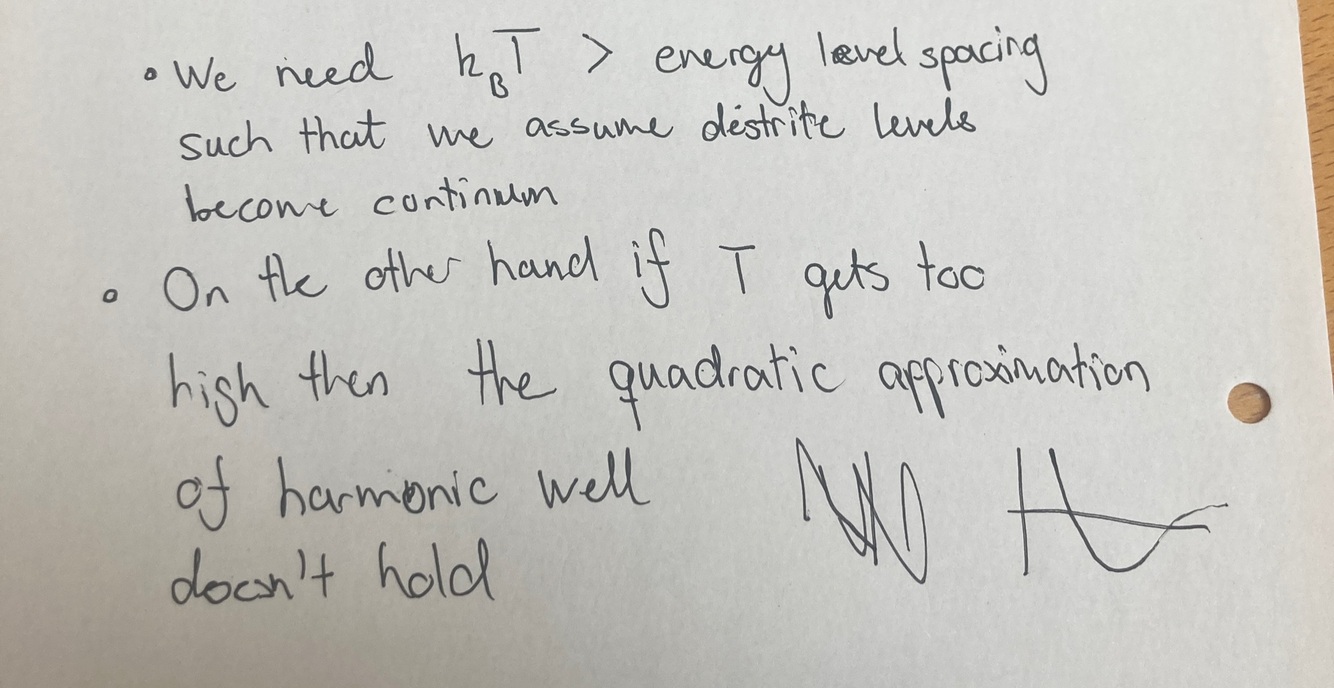 • We need k_BT > energy level spacing
such that we assume déstrite levels
become continum
• On the other hand if T gets too
high then the quadratic approximation
of harmonic well
doesn't hold